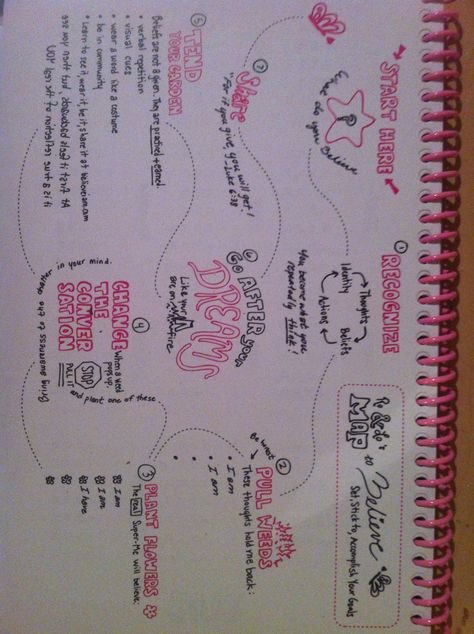 Re & do's
MAP to Believe
Set, Stick to, Accomplish Your Goals
START HERE
do you Believe
?
① RECOGNIZE
Thoughts
Beliefs
Actions
Identity
You become what you
repeatedly think!
② PULL WEEDS
These thoughts hold me back:
• I am
• I am
•
•
③ PLANT FLOWERS
The real Super-Me will believe.
I am
I am
I have
④ CHANGE
THE
CONVER
SATION
when a weed
pops up.
STOP
PULL IT and plant one of these
Bring awareness to
in your mind.
⑤ TEND
YOUR GARDEN
Beliefs are not a given. They are practiced + earned
• verbal repetition
• visual cues
• wear a word like a costume
• be in community
• Learn to see it, wear it, be it, share it at believiam.com
At first it feels awkward, but may you see
it is a true reflection of the real YOU
⑥ GO AFTER your
DREAMS
Like your
are on fire
⑦ Share
"For if you give, you will get!
Luke 6:38